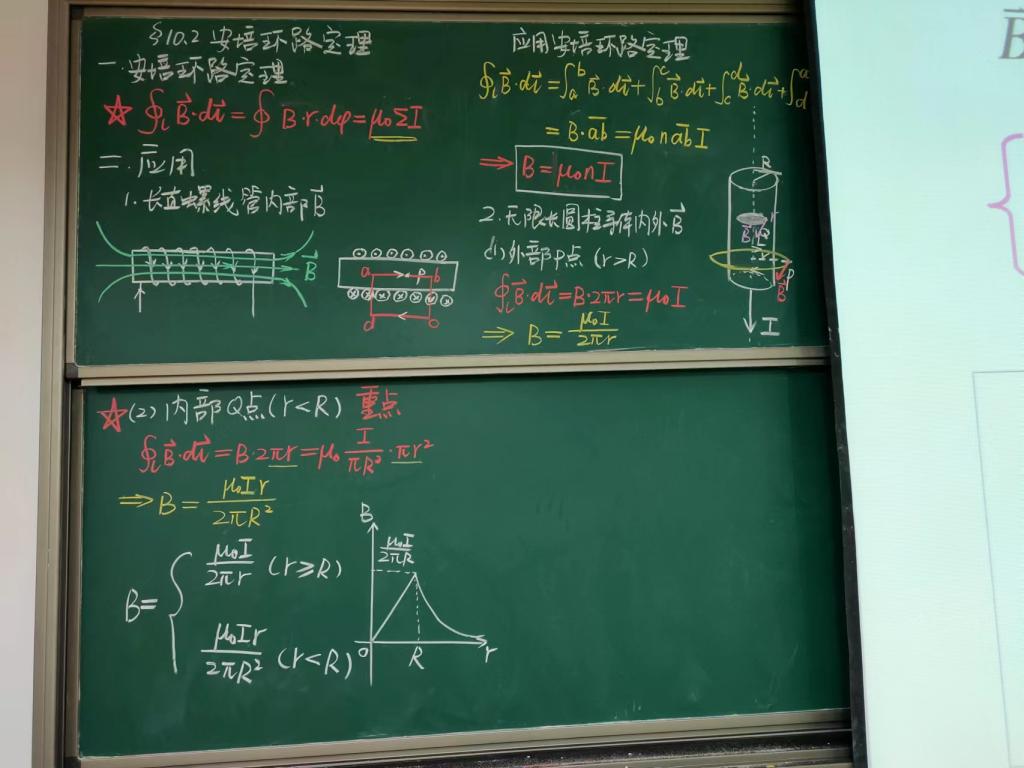 §10.2 安培环路定理
一.安培环路定理
☆ ∮ₗ B⃗·dl⃗ = ∮ B·r·dφ = μ₀ΣI
二.应用
1.长直螺线管内部B⃗
B⃗
a P b
d c
应用安培环路定理
∮ₗ B⃗·dl⃗ = ∫ₐᵇ B⃗·dl⃗ + ∫_b^c B⃗·dl⃗ + ∫_c^d B⃗·dl⃗ + ∫_d^a
= B·a̅b̅ = μ₀na̅b̅I
⇒ B = μ₀nI
2.无限长圆柱导体内外B⃗
(1)外部P点 (r>R)
∮ₗ B⃗·dl⃗ = B·2πr = μ₀I
⇒ B = μ₀I/2πr
R
r
P
B⃗
I
☆(2)内部Q点(r<R) 重点
∮ₗ B⃗·dl⃗ = B·2πr = μ₀ I/πR²·πr²
⇒ B = μ₀Ir/2πR²
B = { μ₀I/2πr (r≥R)
μ₀Ir/2πR² (r<R)
B
μ₀I/2πR
O R r
B⃗